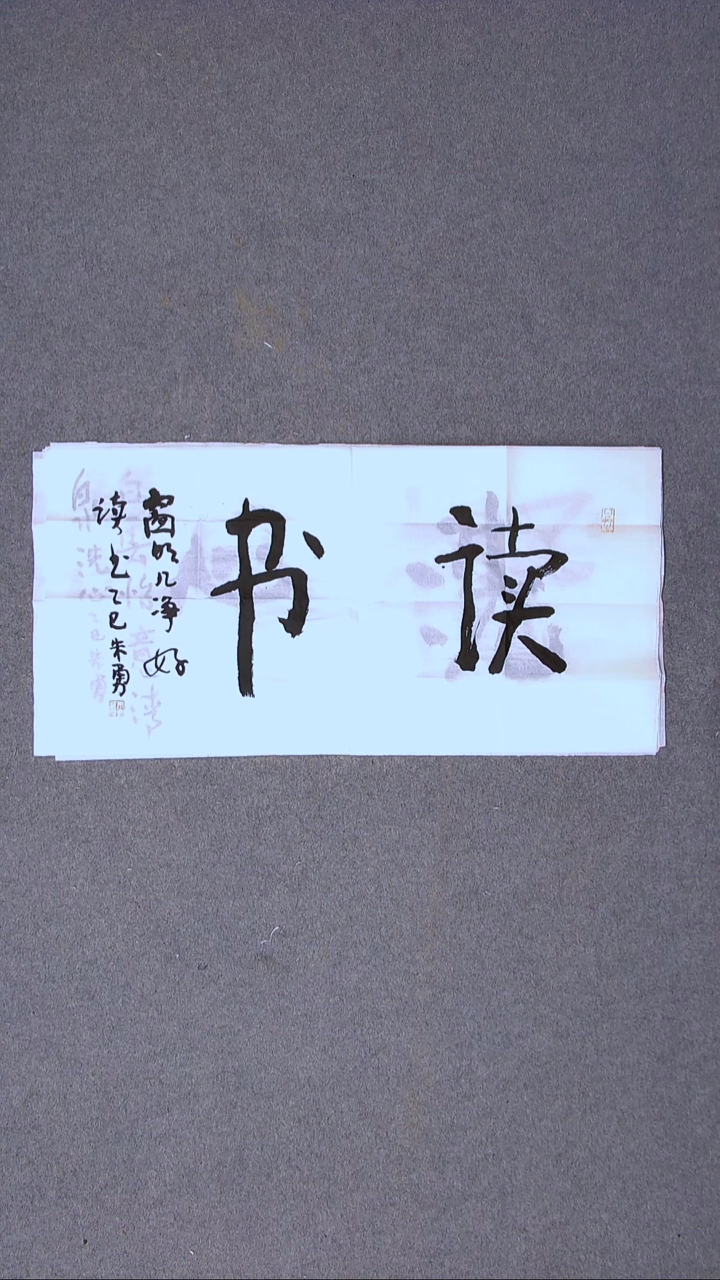 读书
窗明几净好
读书乙巳朱勇